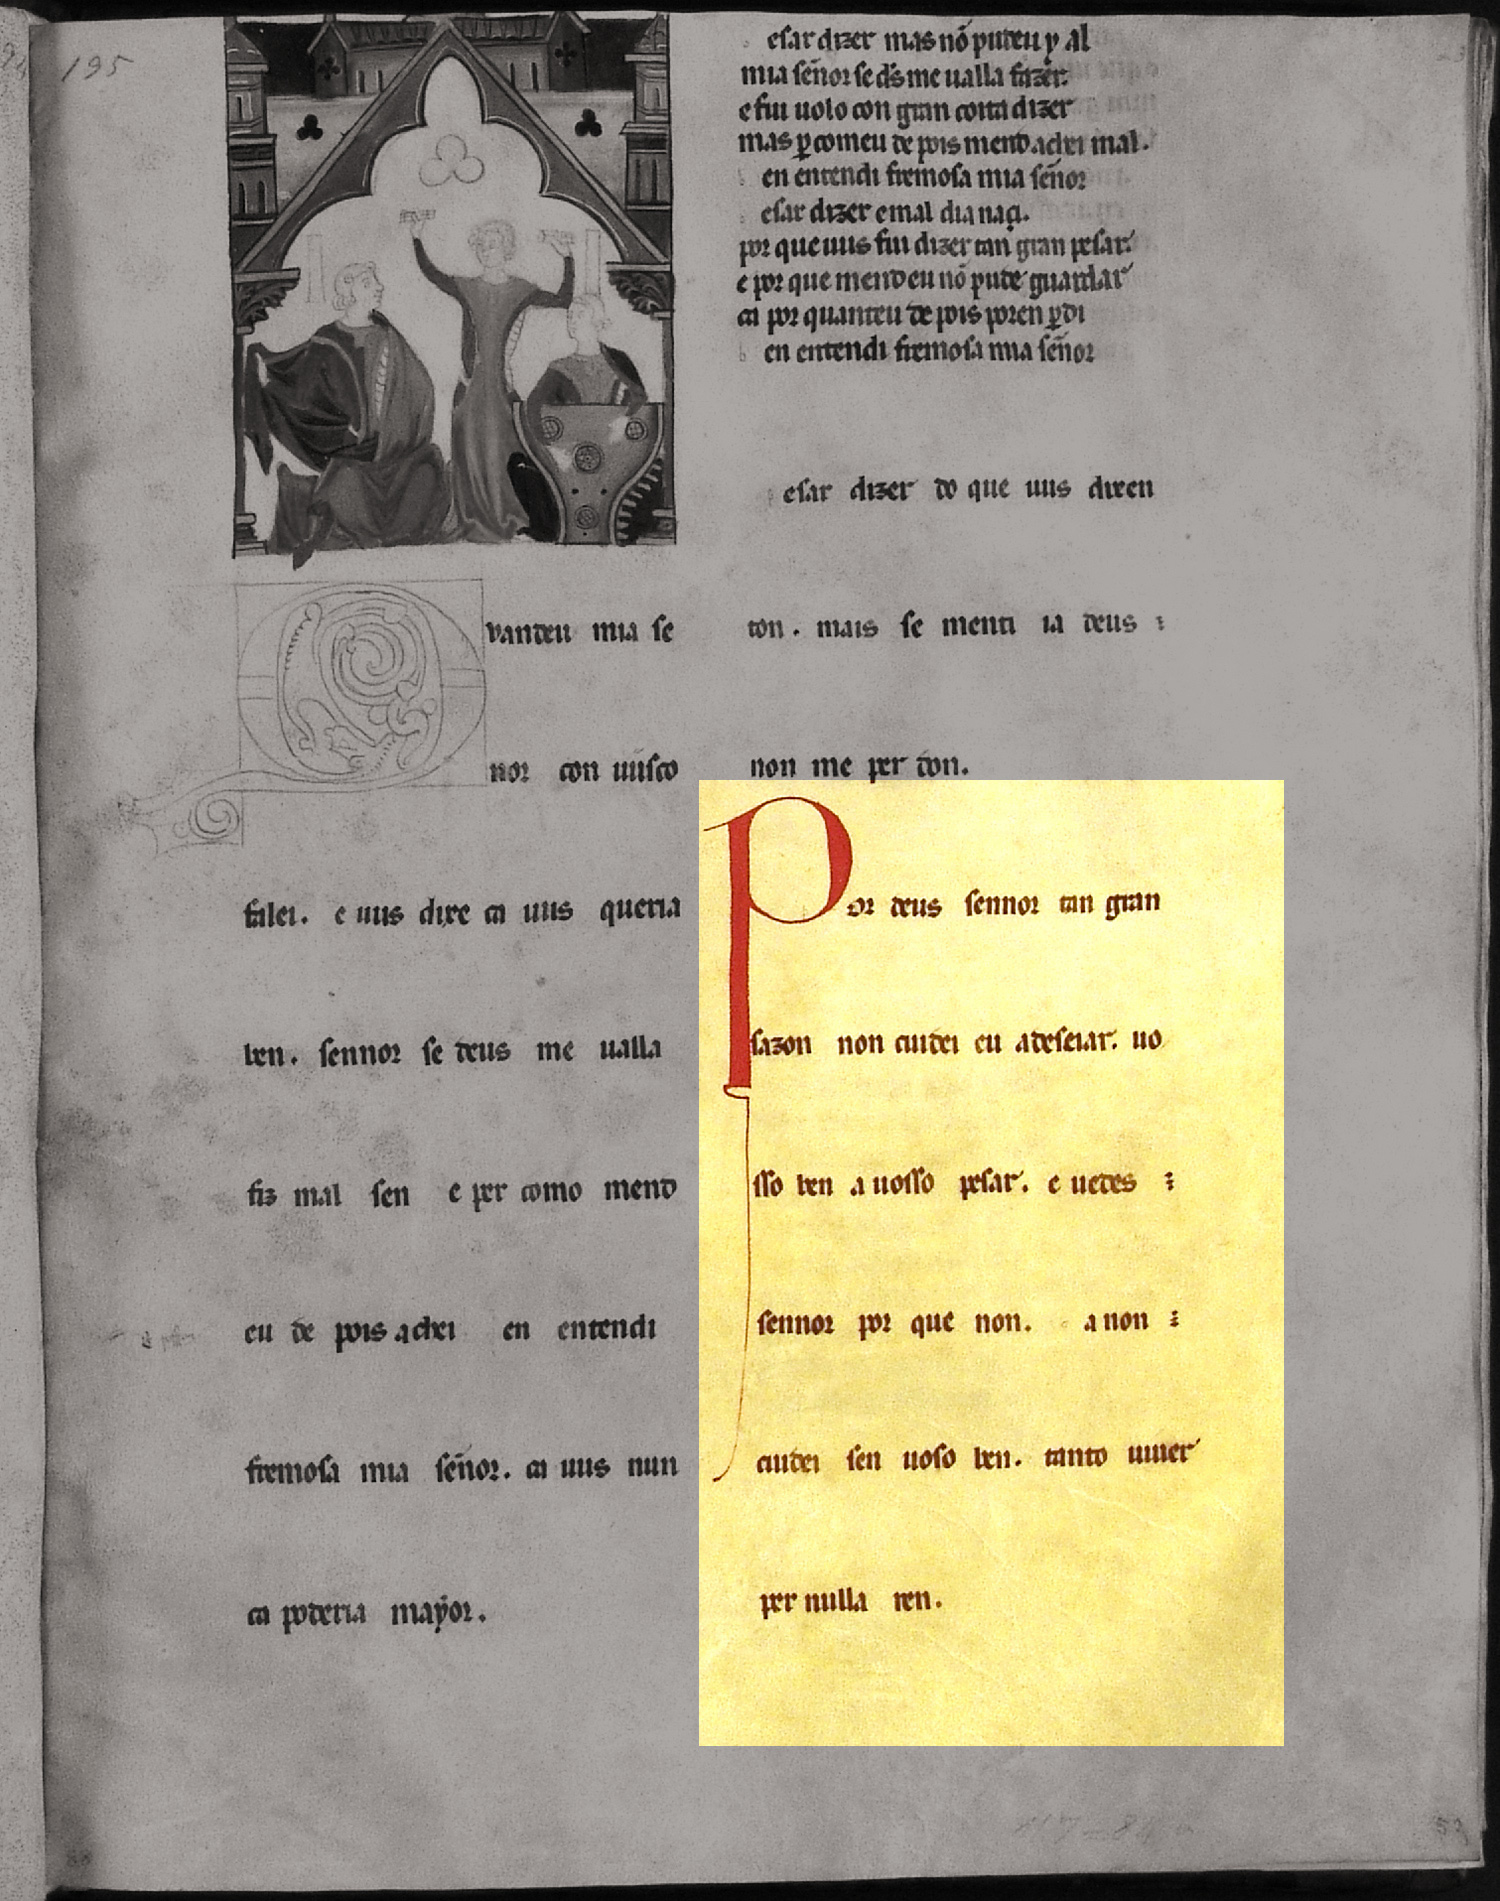 195
vanteu mia se
nor con uusco
falei. e uus dixe ca uus queria
ben. sennor se deus me ualla
fiz mal sen e per como mend
eu de pois achei en entendi
fremosa mia señor. ca uus nun
ca poderia maẏor.
esar dizer mas nõ puteu y al
mia señor se d̃s me ualla fazer.
e fui uolo con gran coita dizer
mas ꝑ comeu de pois mend achei mal.
en entendi fremosa mia señor
esar dizer e mal dia naçi.
por que uus fui dizer tan gran pesar.
e por que mend eu nõ pude guardar
ca por quanteu de pois poren ꝑdi
en entendi fremosa mia señor
esar dizer do que uus dixen
ton. mais se menti ia deus
non me per don.
Por deus sennor tan gran
sazon non cuidei eu a deseiar. uo
sso ben a uosso pesar. e uedes
sennor por que non. a non
cuidei sen uoso ben. tanto uiuer
per nulla ren.